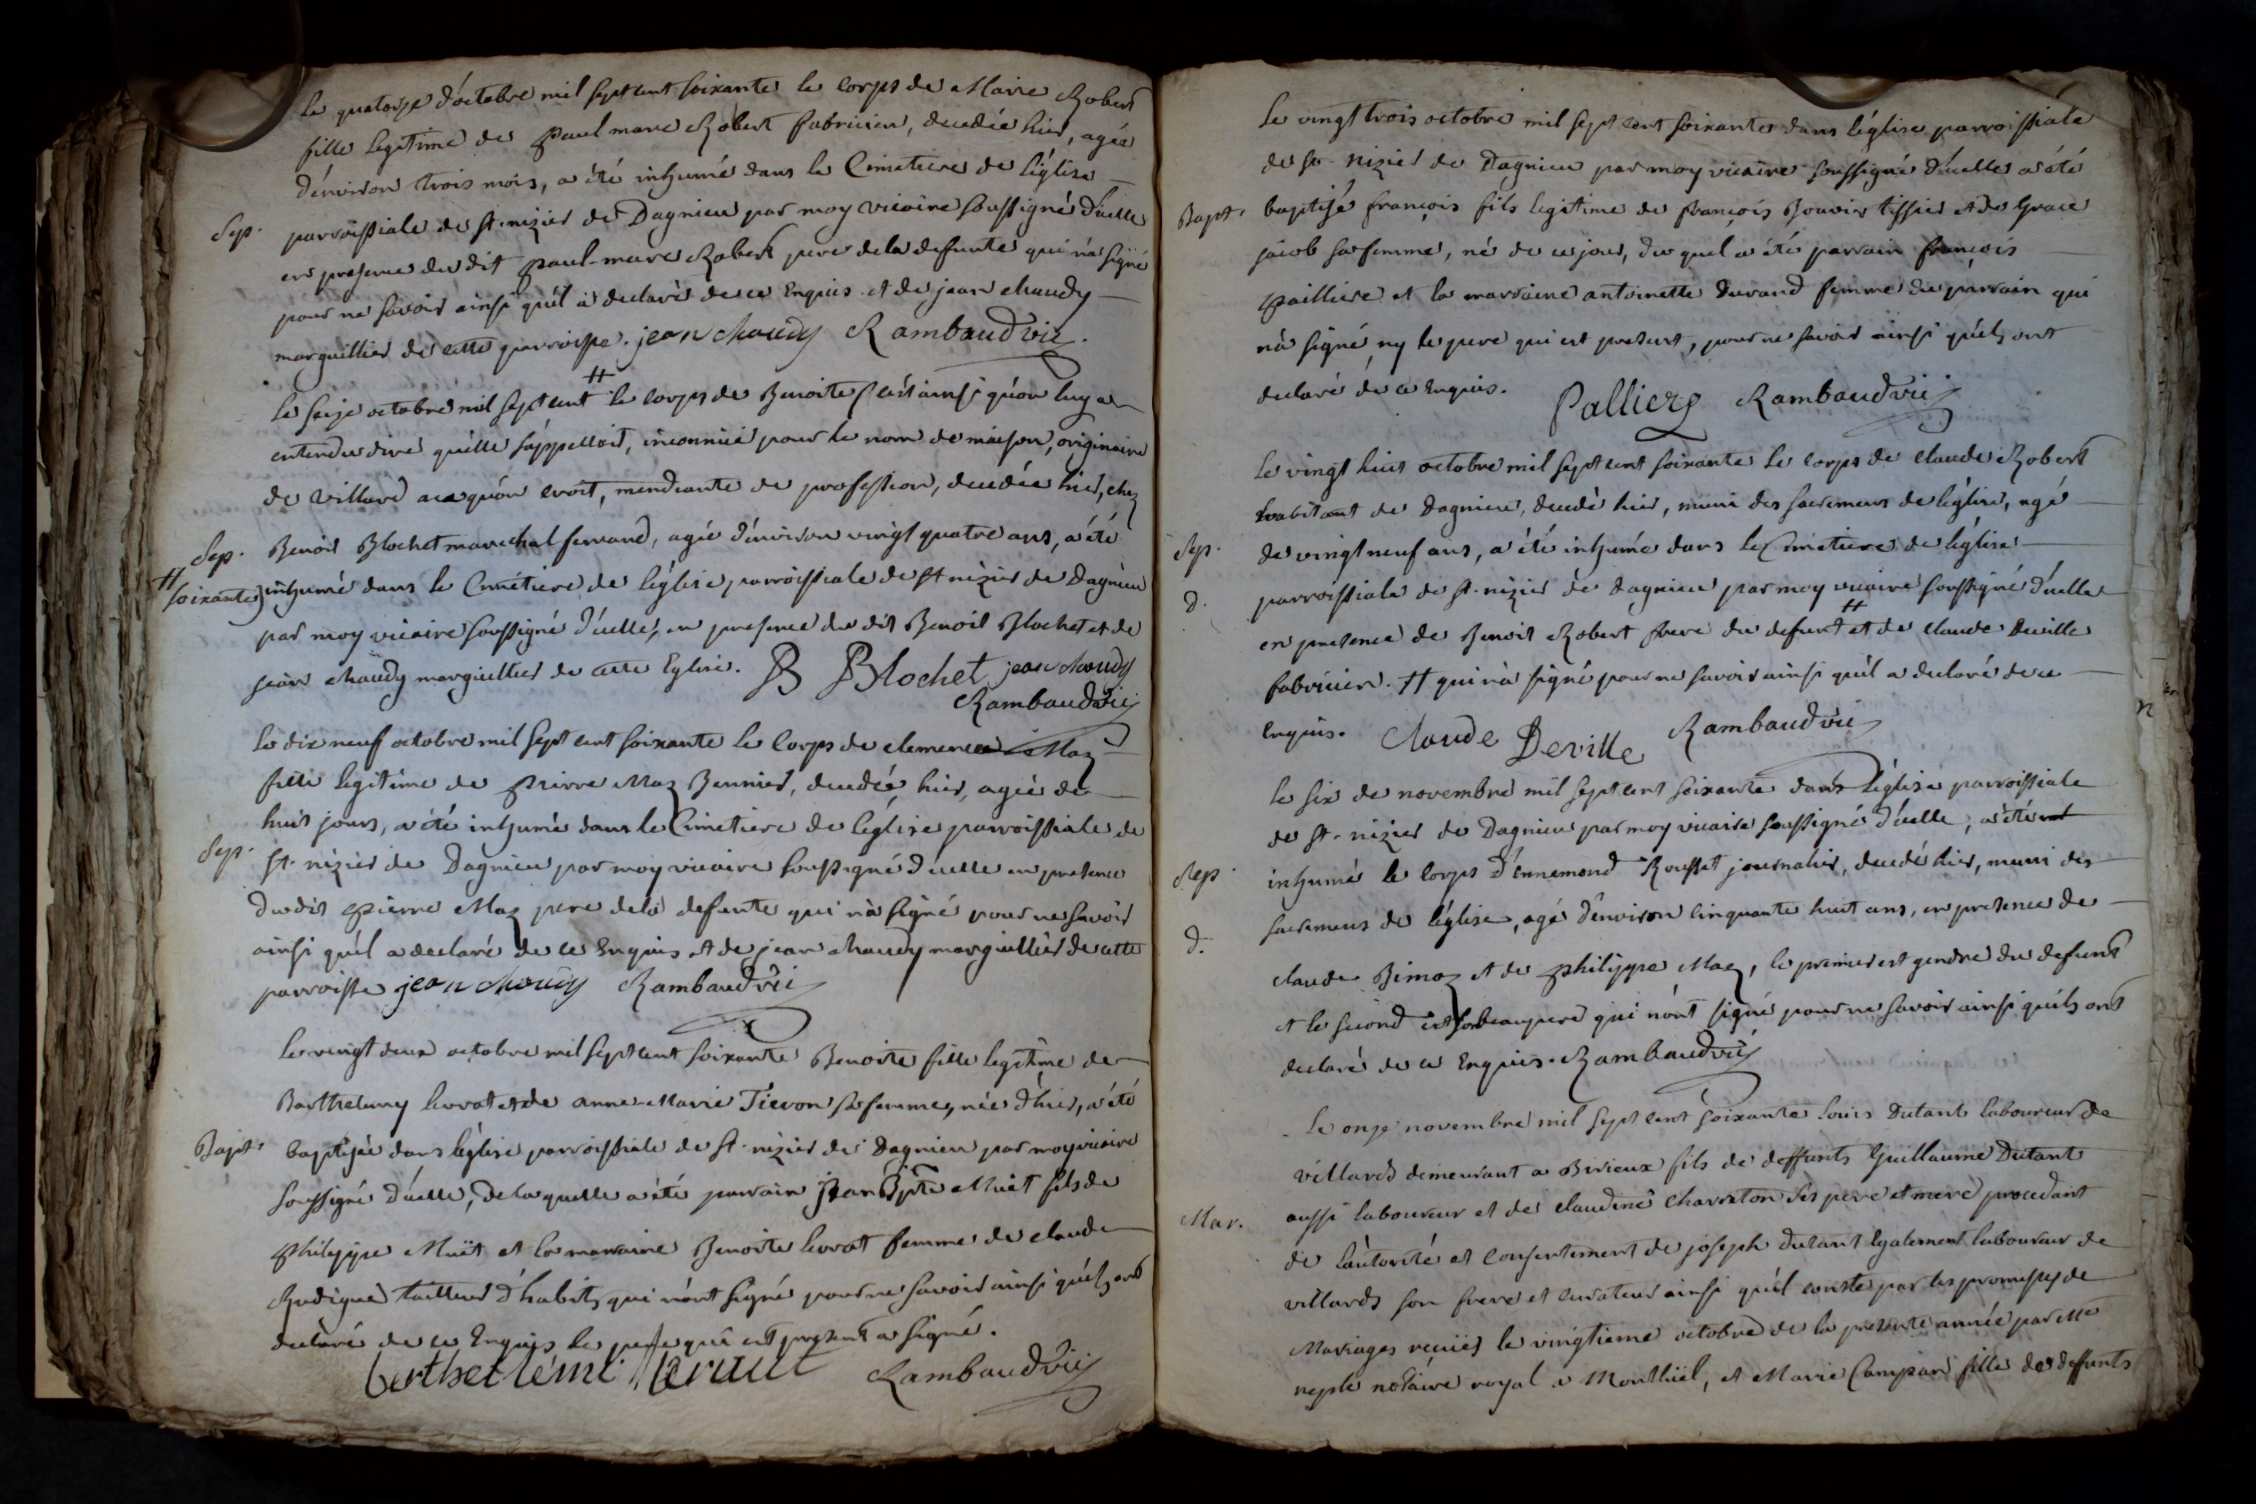 le quatorze d'octobre mil sept cent soixante le corps de Marie Robert
fille legitime de Paul marc Robert fabricien, decedée hier, agée
d'environ trois mois, a été inhumé dans le Cimetiere de l'église
Sep. parroissiale de St. nizier de Dagnieu par moy vicaire soussigné d'icelle
en presence du dit Paul-marc Robert pere de la defunte qui n'a signé
pour ne savoir ainsi qu'il a declaré de ce Enquis et de jean chaudy
marguillier de cette parroisse. jean chaudy Rambaud vic.
le seize octobre mil sept cent # le corps de Benoite c'est ainsi qu'on luy a
entendu dire qu'elle s'appelloit, inconnüe pour le nom de maison, originaire
de villard a ce qu'on croit, mendiante de profession, decedée hier, chez
Sep. Benoit Blochet marechal ferrand, agée d'environ vingt quatre ans, a été
# soixante) inhumé dans le Cimetiere de l'église parroissiale de St nizier de Dagnieu
par moy vicaire soussigné d'icelle, en presence du dit Benoit Blochet et de
jean chaudy marguillier de cette Eglise. B Blochet jean chaudy
Rambaud vic
le dix neuf octobre mil sept cent soixante le corps de clemence Maz
fille legitime de Pierre Maz Bennier, decedée hier, agée de
huit jours, a été inhumé dans le Cimetiere de l'église parroissiale de
Sep. St. nizier de Dagnieu par moy vicaire soussigné d'icelle en presence
du dit Pierre Maz pere de la defunte qui n'a signé pour ne savoir
ainsi qu'il a declaré de ce Enquis et de jean chaudy marguillier de cette
parroisse jean chaudy Rambaud vic
le vingt deux octobre mil sept cent soixante Benoite fille legitime de
Barthelemy levrat et de anne-Marie Tievon sa femme, née d'hier, a été
Bapt. baptisée dans l'église parroissiale de St. nizier de Dagnieu par moy vicaire
soussigné d'icelle, de laquelle a été parrain jean Bpte Muët fils de
Philippe Muët et la marraine Benoite levrat femme de claude
Rudigue tailleur d'habits qui n'ont signé pour ne savoir ainsi qu'ils ont
declaré de ce Enquis le pere qui est present a signé.
Rambaud vic
le vingt trois octobre mil sept cent soixante dans l'église parroissiale
de St. nizier de Dagnieu par moy vicaire soussigné d'icelle a été
Bapt. baptisé françois fils legitime de françois Bouvier tissier et de Grace
jacob sa femme, né de ce jour, du quel a été parrain françois
Pailliere et la marraine antoinette Durand femme du parrain qui
n'a signé ny le pere qui est present, pour ne savoir ainsi qu'ils ont
declaré de ce Enquis. Rambaud vic
le vingt huit octobre mil sept cent soixante le corps de claude Robert
habitant de Dagnieu, decedé hier, muni des sacremens de l'église, agé
Sep. de vingt neuf ans, a été inhumé dans le Cimetiere de l'église
d. parroissiale de St. nizier de Dagnieu par moy vicaire soussigné d'icelle
en presence de Benoit Robert frere du defunt # et de claude Deville
fabricien. # qui n'a signé pour ne savoir ainsi qu'il a declaré de ce
Enquis. Claude Deville Rambaud vic
le six de novembre mil sept cent soixante dans l'église parroissiale
de St. nizier de Dagnieu par moy vicaire soussigné d'icelle, a été
Sep. inhumé le corps d'ennemond Rousset journalier, decedé hier, muni des
sacremens de l'église, agé d'environ cinquante huit ans, en presence de
d. claude Bimoz et de Philippe Maz, le premier est gendre du defunt
et le second est son beaupere qui n'ont signé pour ne savoir ainsi qu'ils ont
declaré de ce Enquis. Rambaud vic
le onze novembre mil sept cent soixante louis Dutant laboureur de
villards demeurant a Birieux fils de deffunts Guillaume Dutant
Mar. aussi laboureur et de claudine charreton ses pere et mere procedant
de l'autorité et consentement de joseph Dutant Egalement laboureur de
villards son frere et curateur ainsi qu'il conste par les promesses de
Mariages recuies le vingtieme octobre de la presente année par Me
neple notaire royal a Montluel, et Marie Campan fille des deffunts